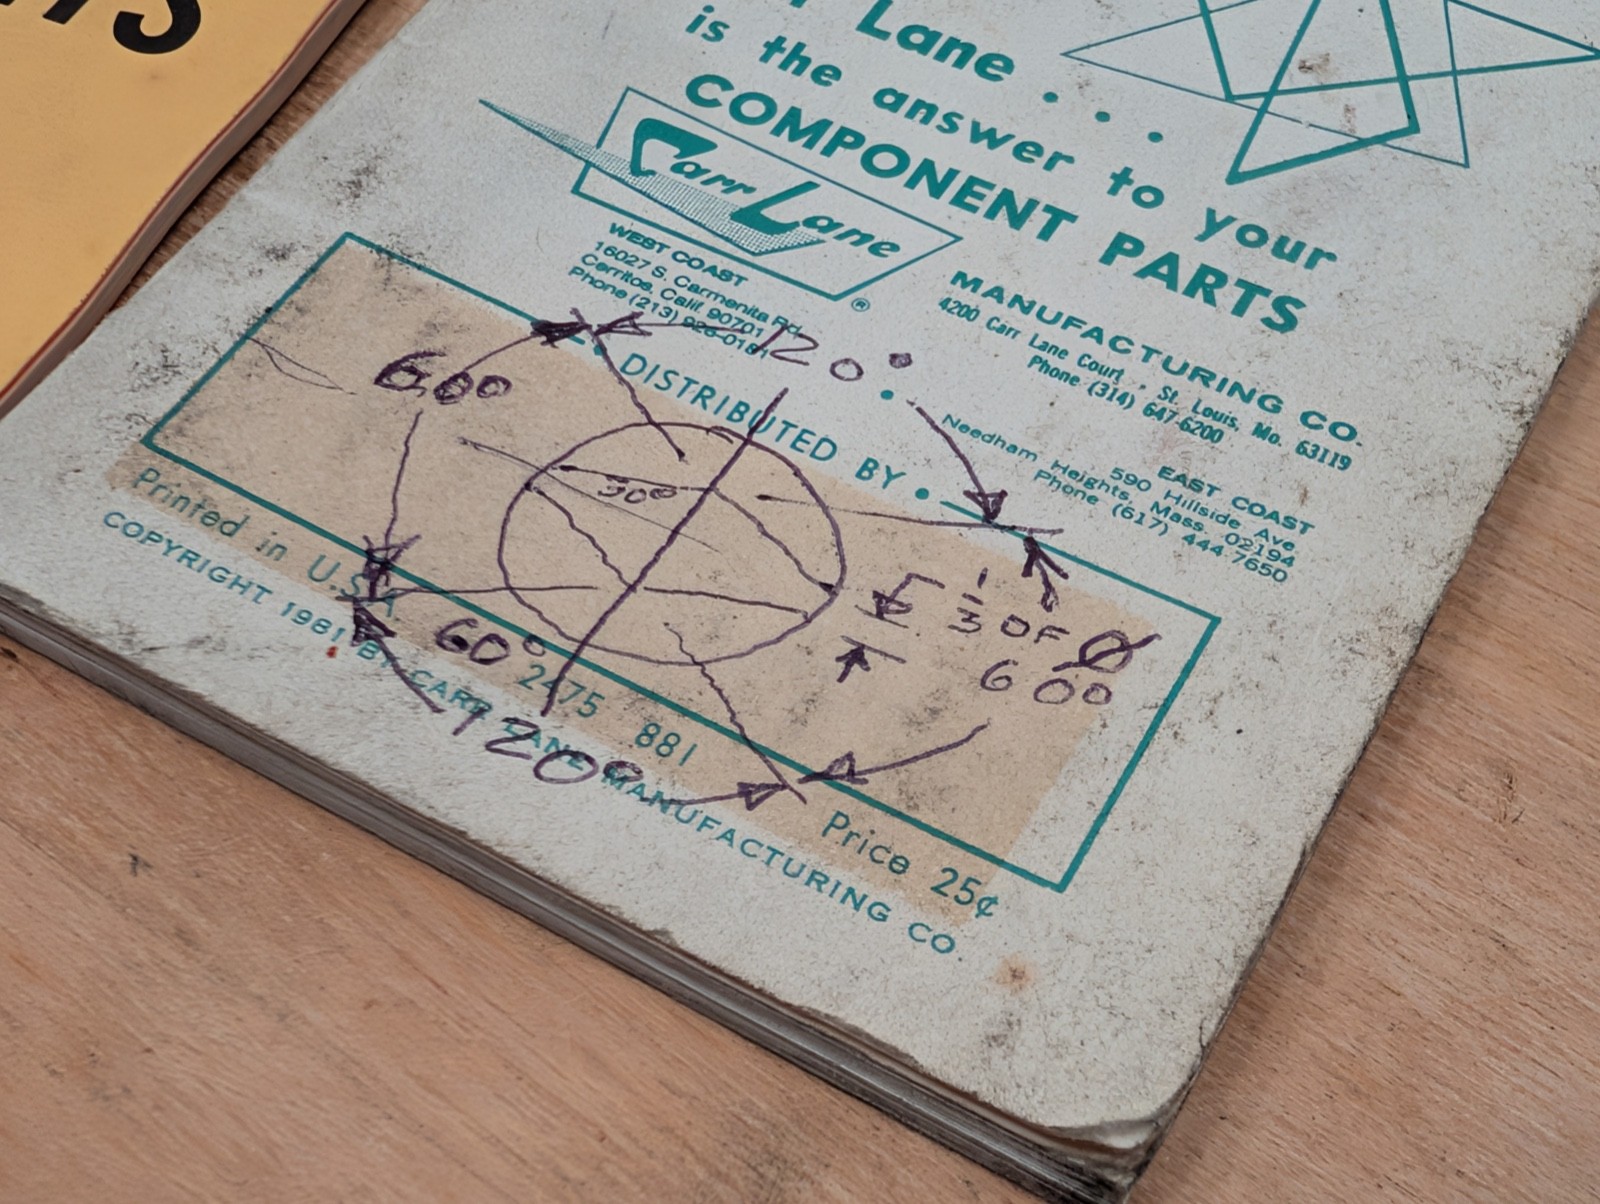 Lane . . .
is the answer to your
COMPONENT PARTS
Carr Lane ®
MANUFACTURING CO.
4200 Carr Lane Court, St. Louis, Mo. 63119
Phone (314) 647-6200
WEST COAST
16027 S. Carmenita Rd.
Cerritos, Calif. 90701
Phone (213) 926-0181
EAST COAST
590 Hillside Ave
Needham Heights, Mass. 02194
Phone (617) 444-7650
DISTRIBUTED BY
120°
60°
30°
1/3 OF Ø
60°
60°
120°
Printed in U.S.A.
2475 881
Price 25¢
COPYRIGHT 1981 BY CARR LANE MANUFACTURING CO.